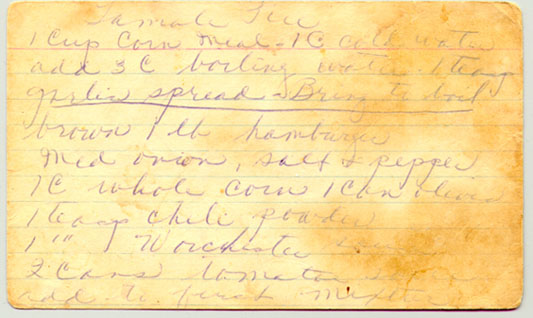 Tamale Pie
1 Cup Corn Meal - 1 C cold water
add 3 C boiling water. 1 teasp
garlic spread - Bring to boil
brown 1 lb hamburger
Med onion, salt & pepper
1 C whole corn 1 can olives
1 teasp chili powder
1 "" Worchester sauce
2 cans tomato
add to first mixture